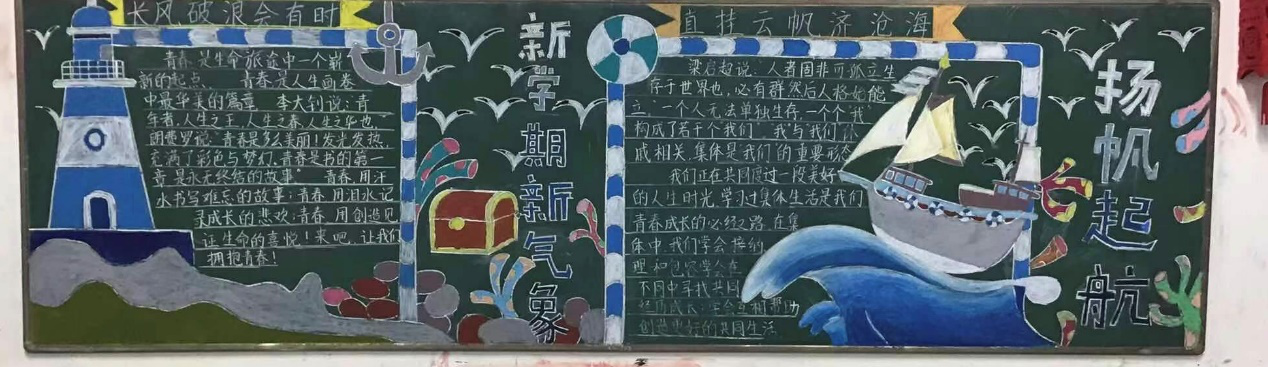 长风破浪会有时
青春是生命旅途中一个崭
新的起点、 青春是人生画卷
中最华美的篇章 李大钊说:青
年者,人生之王,人生之春,人生之华也,
朗费罗说:青春是多么美丽!发光发热,
充满了彩色与梦幻,青春是书的第一
章是永无终结的故事" 青春,用汗
水书写难忘的故事;青春,用泪水记
录成长的悲欢;青春,用创造见
证生命的喜悦!来吧,让我们
拥抱青春!
新学期新气象
直挂云帆济沧海
梁启超说:"人者固非可孤立生
存于世界也,必有群然后人格始能
立"一个人无法单独生存,一个个"我"
构成了若干个"我们","我"与"我们"
戚相关,集体是"我们"的重要形态
我们正在共同度过一段美好
的人生时光,学习过集体生活是我们
青春成长的必经之路,在集
体中,我们学会接纳
理和包容学会在
不同中寻找共同
互相帮助
创造更好的共同生活
扬帆起航